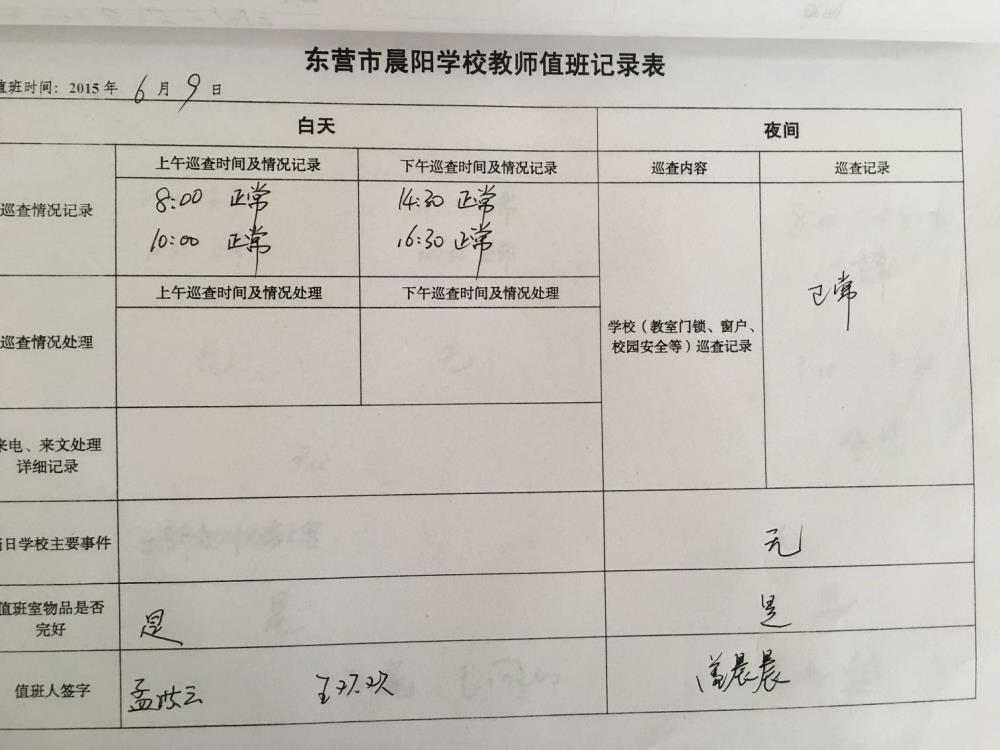 东营市晨阳学校教师值班记录表
值班时间：2015年 6月 9日
白天 夜间
上午巡查时间及情况记录 下午巡查时间及情况记录 巡查内容 巡查记录
巡查情况记录
8:00 正常 14:30 正常
10:00 正常 16:30 正常
上午巡查时间及情况处理 下午巡查时间及情况处理
巡查情况处理
学校（教室门锁、窗户、
校园安全等）巡查记录
正常
来电、来文处理
详细记录
当日学校主要事件 无
值班室物品是否
完好
是 是
值班人签字 孟洪云 王欢欢 晨晨